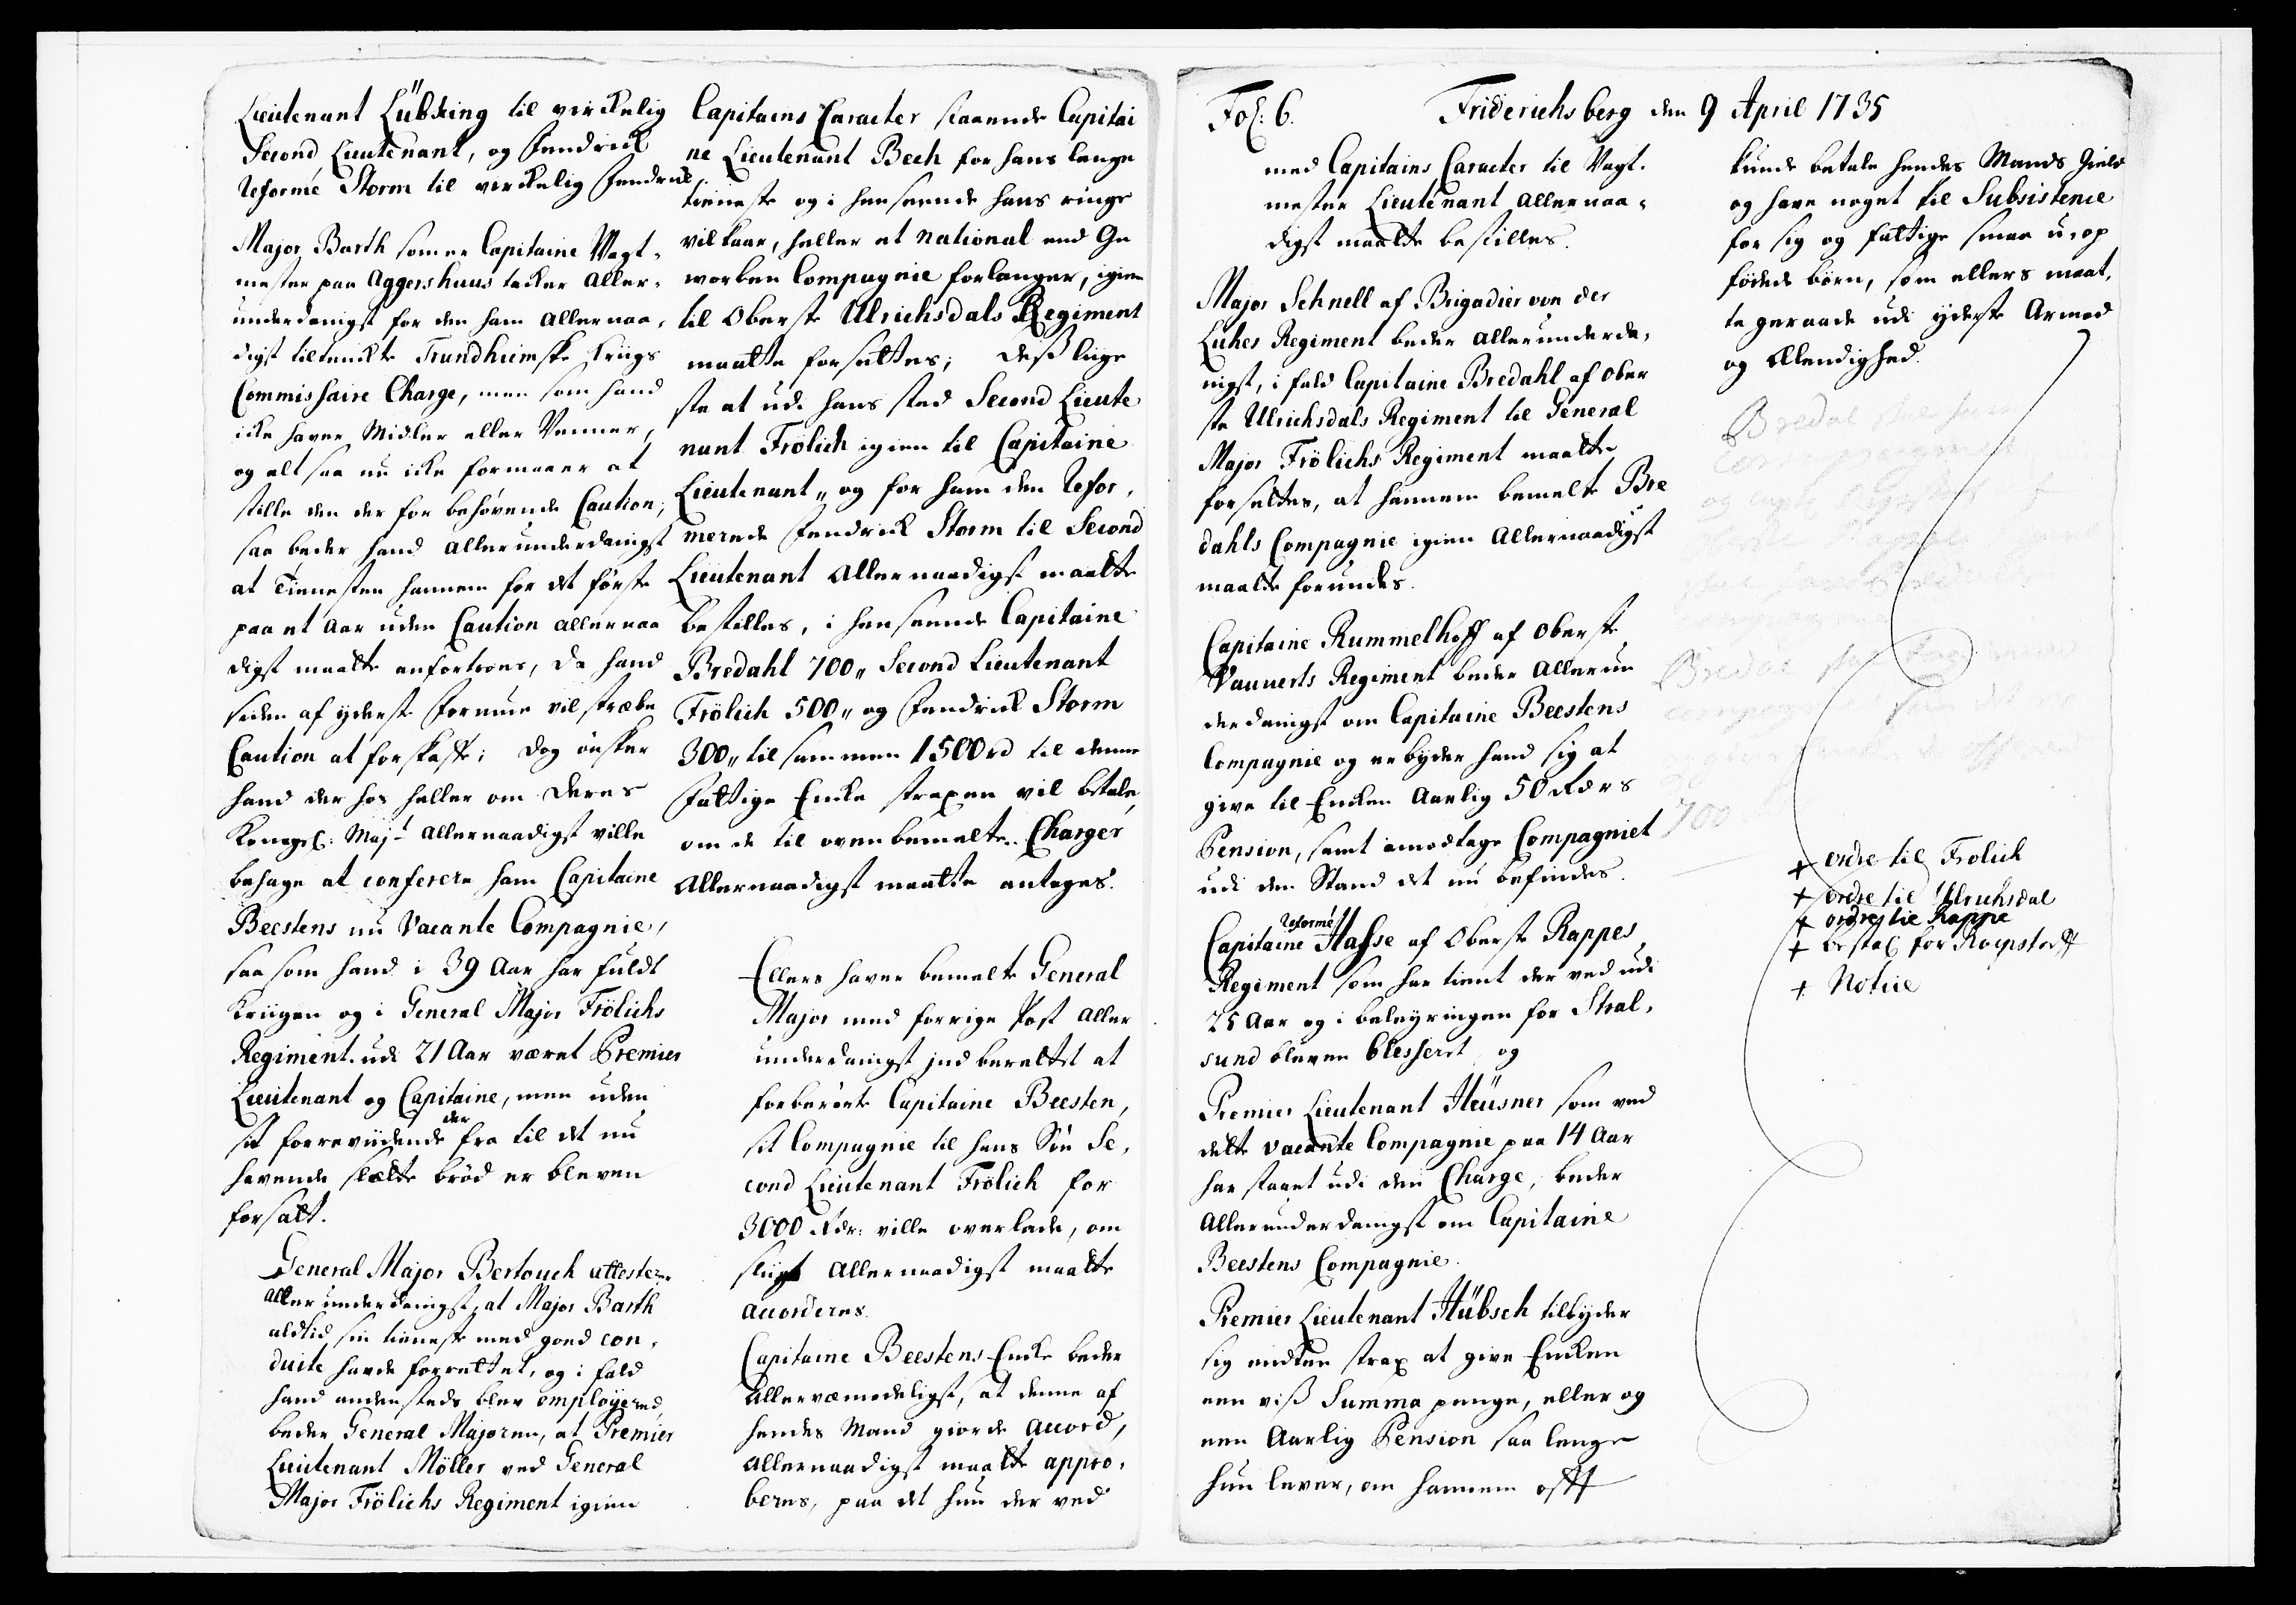 Lieutenant Lübking til virkelig
Second Lieutenant, og Fendrick
Reformé Storm til verkelig Fendrick
Major Barth som er Capitaine Vagt-
mester paa Aggershuus tacker Aller-
underdanigst for den ham Allernaa-
digst tiltenckte Trundheimske Kriigs
Commissaire Charge, men som hand
icke haver Midler eller Venner,
og alt saa nu icke formaaer at
stille den der for behøvende Caution,
saa beder hand Allerunderdanigst
at Tienesten hannem for det første
paa et Aar uden Caution allernaa
digst maatte anfortroes, da hand
siden af yderste Formue vil stræbe
Caution at forskaffe; dog ønsker
hand der hos heller om Deres
Kongel: Majt Allernaadigst ville
behage at conferere ham Capitaine
Beestens nu Vacante Compagnie,
saa som hand i 39 Aar har fuldt
Kriigen og i General Major Frölichs
Regiment udi 21 Aar været Premier
Lieutenant og Capitaine, men uden
sit forreviidende der fra til det nu
havende slette brød er bleven
forsatt.
General Major Bertouch attesterer
Allerunderdanigst, at Major Barth
altid sin tieneste med goed con-
duite havde forrettet, og i fald
hand andensteds blev employered,
beder General Majoren, at Premier
Lieutenant Möller ved General
Major Frölichs Regiment igien
Capitains Caracter staaende Capitai
ne Lieutenant Bech for hans lange
tieneste og i henseende hans ringe
vilkaar, heller et national end Ge
worben Compagnie forlanger, igien
til Oberste Ulrichsdals Regiment
maatte forsættes; deßliige
ste at udi hans sted Second Lieute
nant Frölich igien til Capitaine
Lieutenant, og for ham den Refor-
merede Fendrick Storm til Second
Lieutenant Allernaadigst maatte
bestilles, i henseende Capitaine
Bredahl 700, Second Lieutenant
Frölich 500, og Fendrick Storm
300, til sammen 1500 rd til denne
Fattige Encke straxen vil betale,
om de til ovenbemelte Charger
Allernaadigst maatte antages.
Ellers haver bemelte General
Major med forrige Post Aller
underdanigst ind berettet at
forberørte Capitaine Beesten,
sit Compagnie til hans Søn Se-
cond Lieutenant Frölich for
3000 Rdr: ville overlade, om
sligt Allernaadigst maatte
accorderes.
Capitaine Beestens Encke beder
Allervemodeligst, at denne af
hendes Mand giorde accord,
Allernaadigst maatte appro-
beres, paa det hun der ved
Fol: 6. Friderichsberg den 9 April 1735
med Capitains Caracter til Vagt-
mester Lieutenant Allernaa-
digst maatte bestilles.
Major Schnell af Brigadier von der
Lühes Regiment beder Allerunderda-
nigst, i fald Capitaine Bredahl af Ober
ste Ulrichsdals Regiment til General
Major Frölichs Regiment maatte
forsættes, at hannem bemelte Bre
dahls Compagnie igien Allernaadigst
maatte forundes.
Capitaine Rummelhoff af Oberste
Vauverts Regiment beder Allerun
derdanigst om Capitaine Beestens
Compagnie og erbyder hand sig at
give til Encken Aarlig 50 Rdrs
Pension, samt imodtage Compagniet
udi den Stand det nu befindes.
Capitaine Reformé Hasse af Oberste Rappes
Regiment som har tient der ved udi
25 Aar og i beleyringen for Stral-
sund bleven blesseret, og
Premier Lieutenant Heüsner som ved
dette vacante Compagnie paa 14 Aar
har staaet udi den Charge, beder
Allerunderdanigst om Capitaine
Beestens Compagnie.
Premier Lieutenant Hübsch tilbyder
sig endten strax at give Encken
een viß Summa penge, eller og
een Aarlig Pension saa lenge
hun lever, om hannem off
kunde betale hendes Mands Gield
og have noget til Subsistence
for sig og fattige smaa u-op
fødede børn, som ellers maat-
te geraade udi yderste Armod
og Elendighed.
Bredal
Bredal
700
+ ordre til Frolich
+ ordre til Ulrichsdal
+ ordre til Rappe
+ bestal for Roepstorff
+ Notice